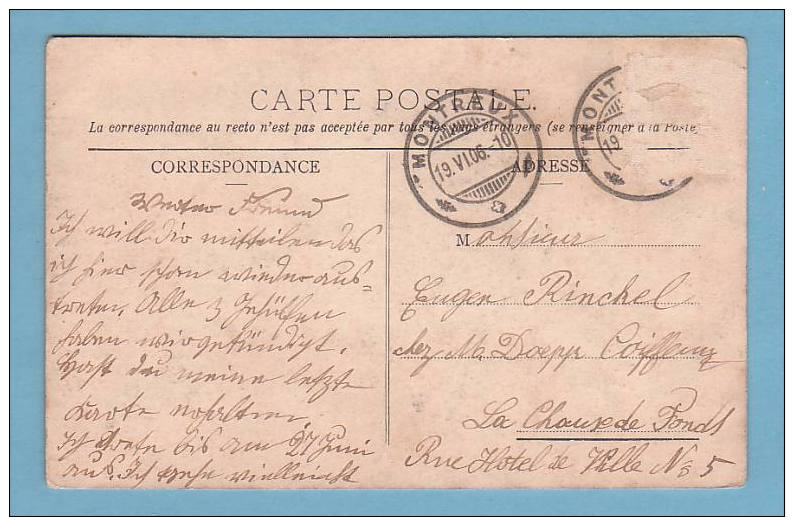 CARTE POSTALE.
La correspondance au recto n'est pas acceptée par tous les pays étrangers (se renseigner à la Poste)
CORRESPONDANCE
ADRESSE
MONTREUX
19.VI.06.-10
MONT
19.
Werter Freund
Ich will dir mitteilen das
ich hier schon wieder aus-
treten. Alle 3 Gehülfen
haben wir gekündigt.
Hast du meine letzte
Karte erhalten
Ich trete bis am 27 Juni
aus. Ich gehe vielleicht
Monsieur
Eugen Rinckel
chez M. Doepp Coiffeur
La Chaux de Fonds
Rue Hôtel de Ville No 5